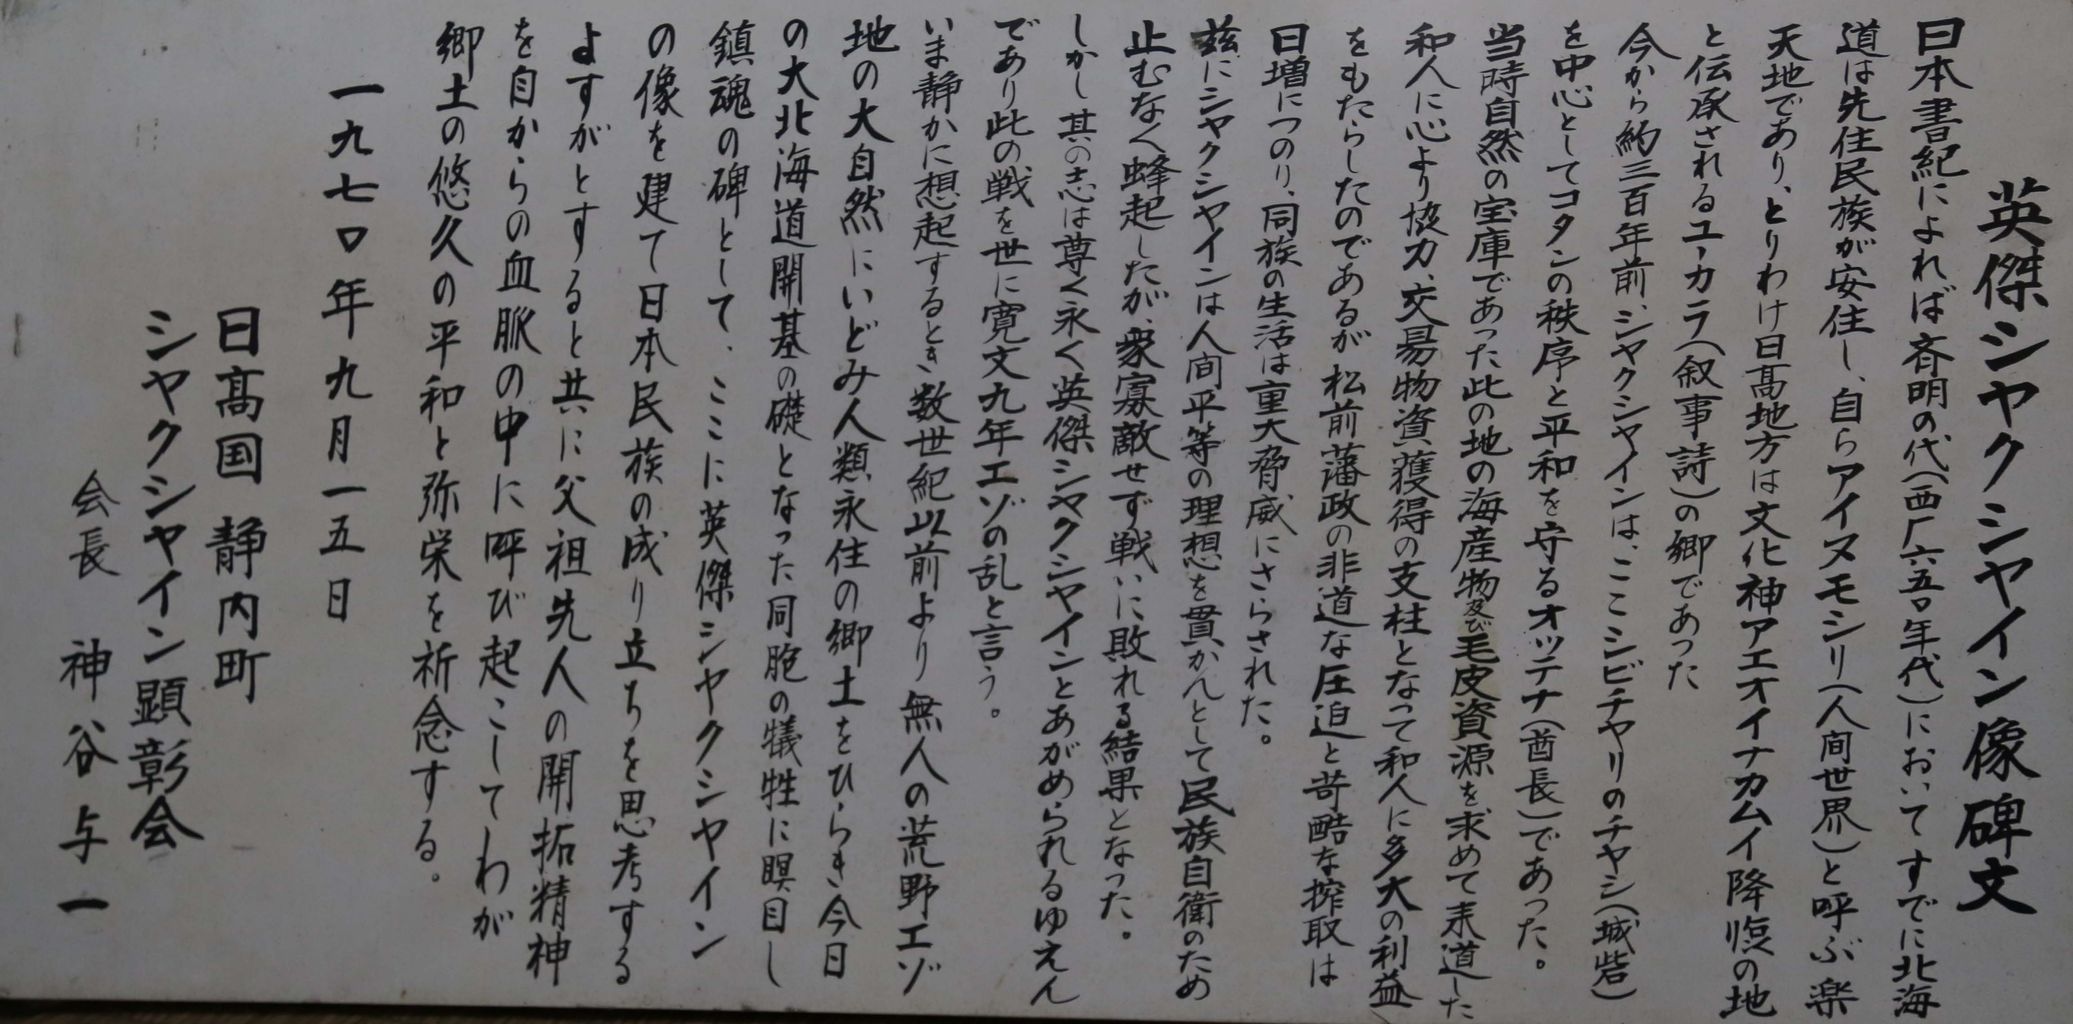 英傑シヤクシヤイン像碑文
日本書紀によれば斉明の代(西厂六五〇年代)においてすでに北海
道は先住民族が安住し、自らアイヌモシリ(人间世界)と呼ぶ楽
天地であり、とりわけ日髙地方は文化神アエオイナカムイ降臨の地
と伝承されるユーカラ(叙事詩)の郷であった
今から約三百年前、シヤクシヤインは、ここシビチヤリのチヤシ(城砦)
を中心としてコタンの秩序と平和を守るオッテナ(酋長)であった。
当時自然の宝庫であった此の地の海産物及び毛皮資源を求めて来道した
和人に心より協力、交易物資獲得の支柱となって和人に多大の利益
をもたらしたのであるが松前藩政の非道な圧迫と苛酷な搾取は
日増につのり、同族の生活は重大脅威にさらされた。
茲にシヤクシヤインは人间平等の理想を貫かんとして民族自衛のため
止むなく蜂起したが、衆寡敵せず戦いに敗れる結果となった。
しかし其の志は尊く永く英傑シヤクシヤインとあがめられるゆえん
であり此の戦を世に寛文九年エゾの乱と言う。
いま静かに想起するとき数世紀以前より無人の荒野エゾ
地の大自然にいどみ人類永住の郷土をひらき今日
の大北海道開基の礎となった同胞の犠牲に瞑目し
鎮魂の碑として、ここに英傑シヤクシヤイン
の像を建て日本民族の成り立ちを思考する
よすがとすると共に父祖先人の開拓精神
を自からの血脈の中に呼び起こしてわが
郷土の悠久の平和と弥栄を祈念する。
一九七〇年九月一五日
日髙国 静内町
シヤクシヤイン顕彰会
会長 神谷与一